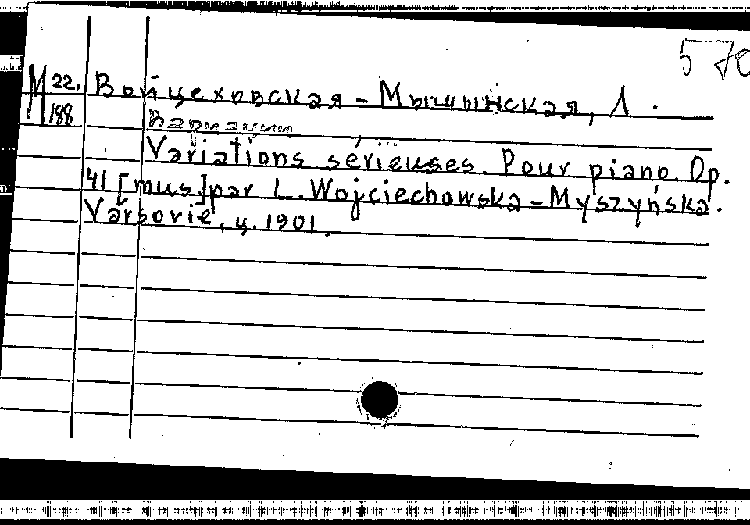 570
М 22. Войцеховская - Мышиньская, Л.
188 Вариации
Variations sérieuses. Pour piano. Op.
41 [mus.] par L. Wojciechowska - Myszyńska.
Varsovie, ц. 1901.